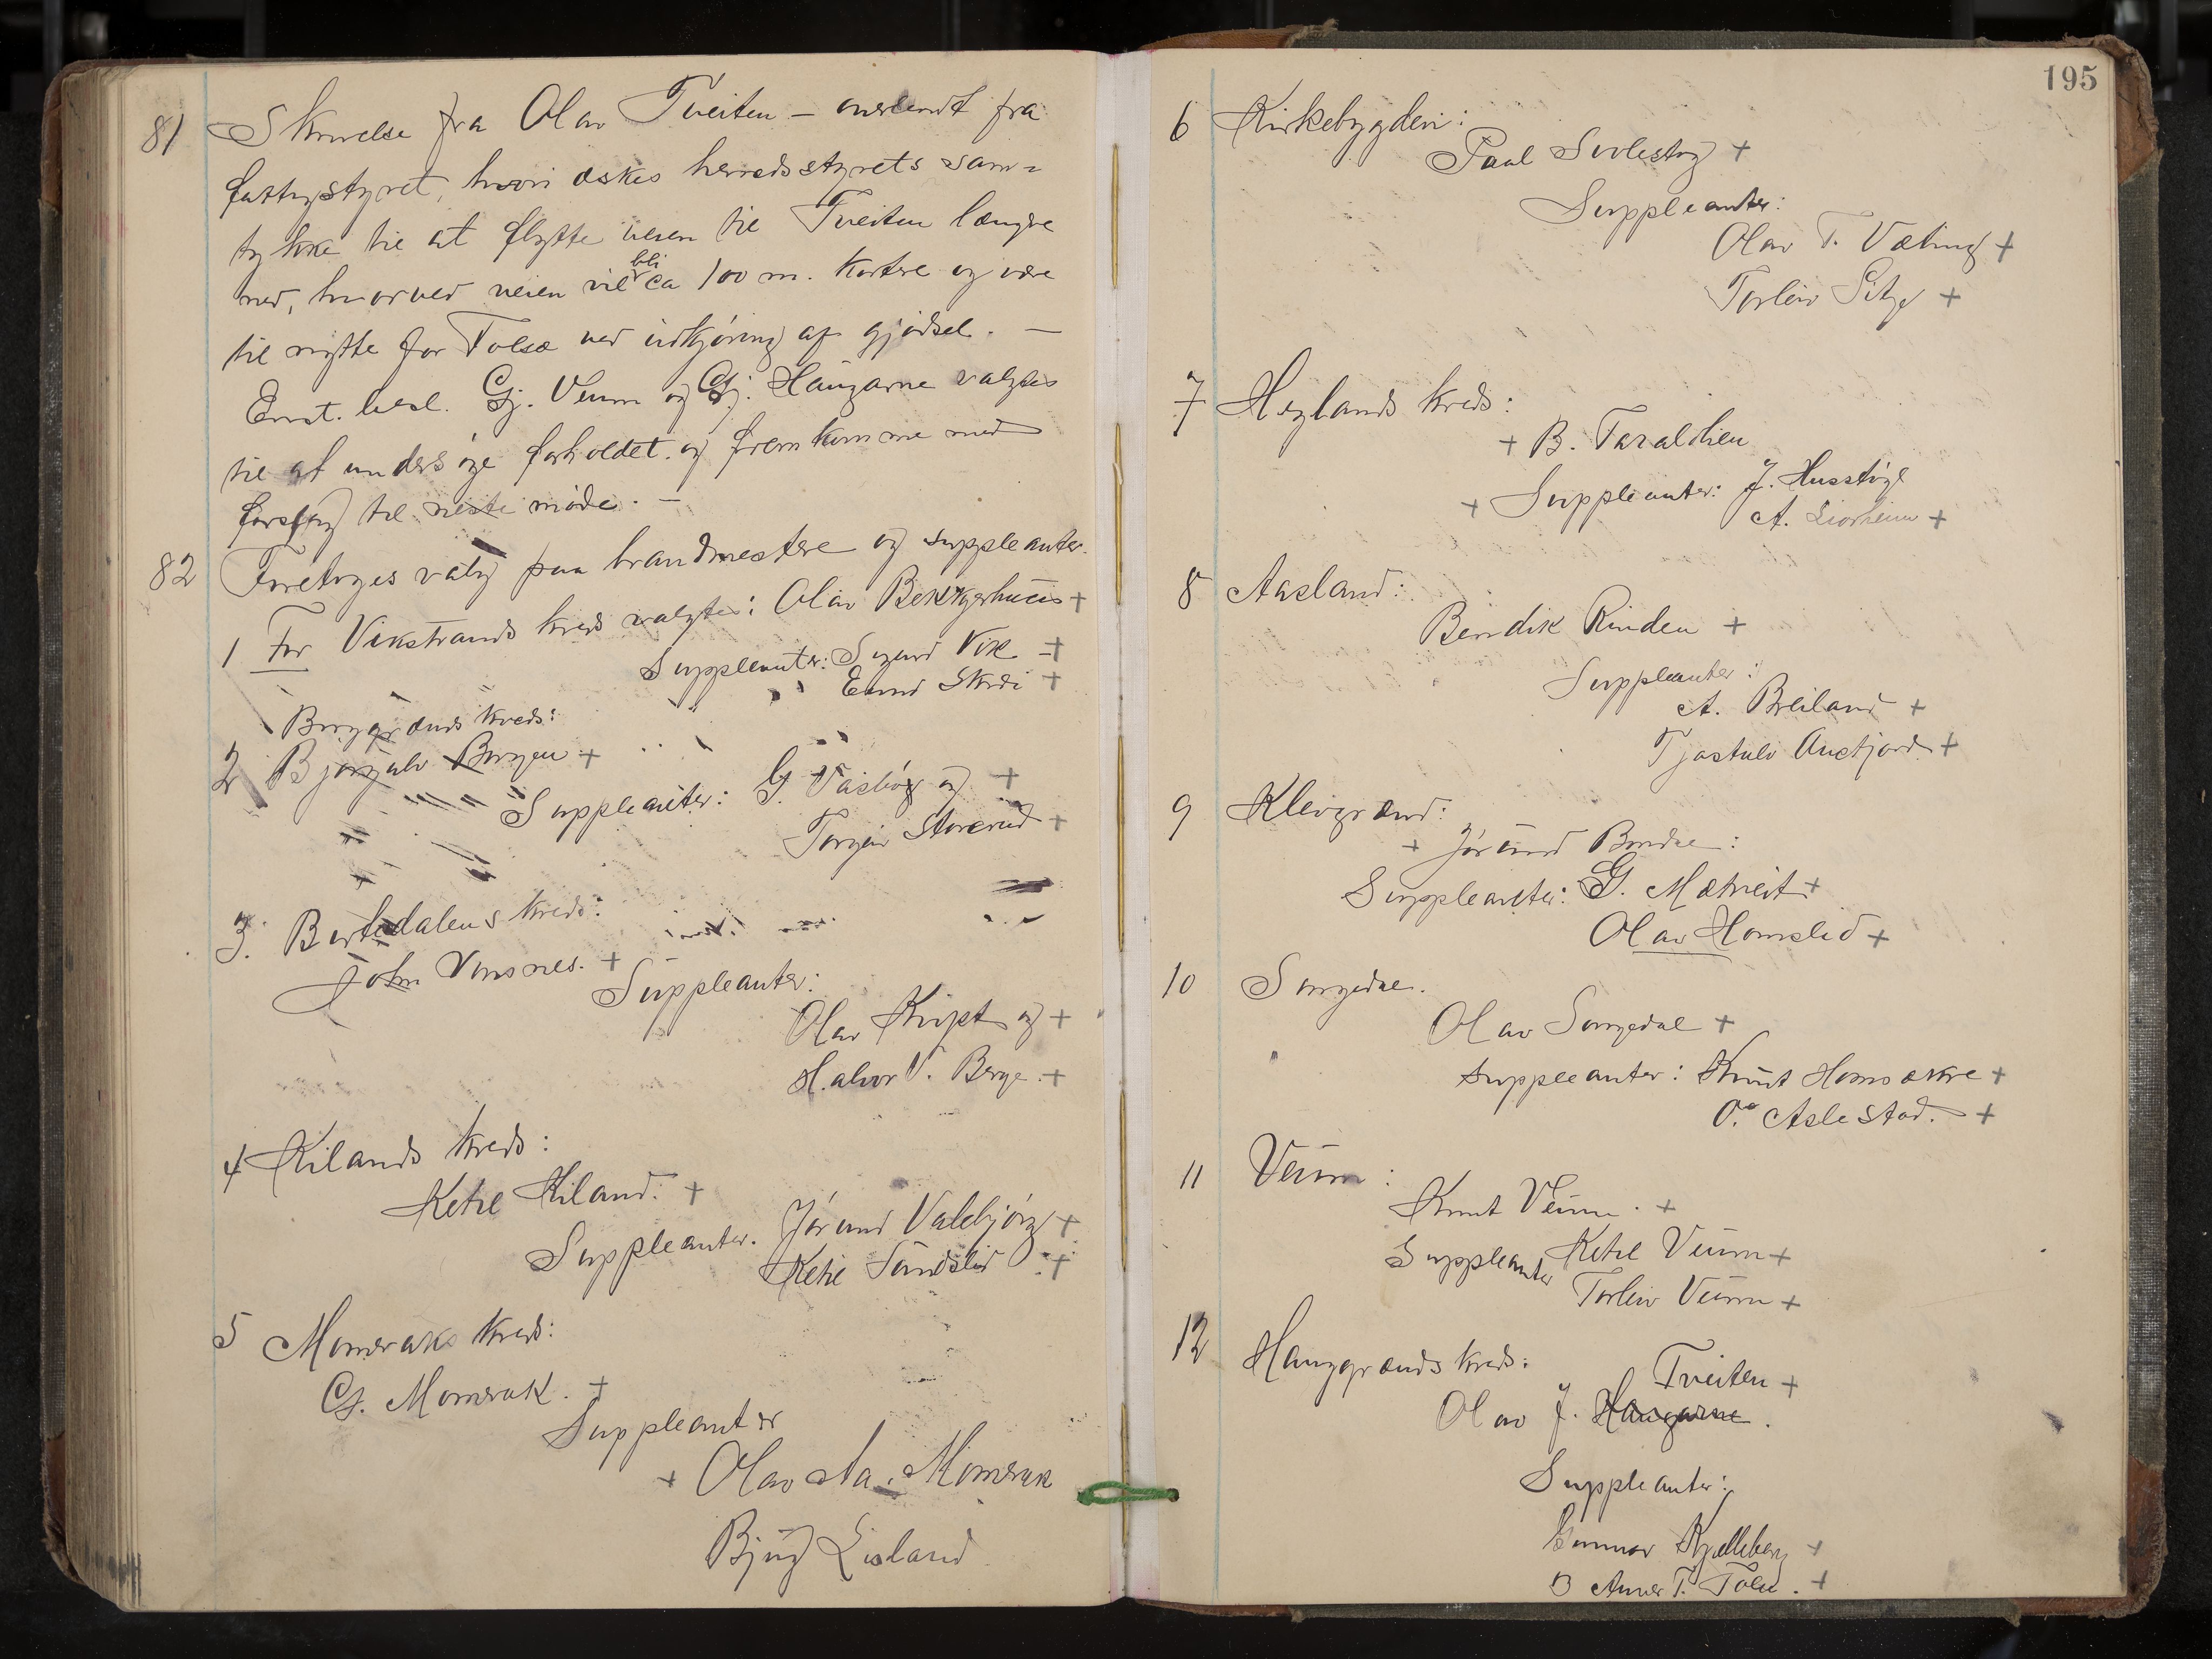 81 Skrivelse fra Olav Tveiten – oversendt fra
fattigstyret, hvori æskes herredsstyrets sam=
tykke til at flytte veien til Tveiten længre
ned, hvorved veien vil bli ca 100 m. kortere og være
til nytte for Folsæ ved udkjøring af gjødsel. —
Enst. besl. Gj. Veum og Gj. Haugarne valgtes
til at undersøge forholdet og fremkomme med
forslag til neste møde. —
82 Foretoges valg paa brandmestere og suppleanter.
1 For Vikstrands kreds valgtes: Olav Bekkhus +
Suppleanter: Sigurd Vik +
Eivind Skrei +
Borggrænds kreds:
2 Bjørgulv Borgen +
Suppleanter: G. og +
Torgeir Storerud +
3. Bortedalens kreds:
John Vensnes. +
Suppleanter:
Olav og +
Halvor V. Berge. +
4 Kilands kreds:
Ketil Kiland. +
Suppleanter. Jørund Valebjørg +
Ketil Sundslid +
5 Momraks kreds:
G. Momrak. +
Suppleanter
+ Olav Aa. Momrak
Bjug Lisland
195
6 Kirkebygden:
Paal +
Suppleanter:
Olav T. Væting +
Torleiv +
7 Heglands kreds:
+ B. Taraldlien
+ Suppleanter: J. Husstøyl
A. +
8 Aasland:
Bendik Rinden +
Suppleanter:
A. Breiland +
Tjostulv Austjord +
9 Kleivgrend:
+ Jørund Bondal:
Suppleanter: G. Mætveit +
Olav Homslid +
10 Songedal.
Olav Songedal +
Suppleanter: Knut Homsakre +
O. Aslestad. +
11 Veum:
Knut Veum. +
Suppleanter Ketil Veum +
Torleiv Veum +
12 Hauggrænds kreds:
Tveiten +
Olav J. Haugarne.
Suppleanter:
Gunnar Kjelleberg +
Aanes T. +